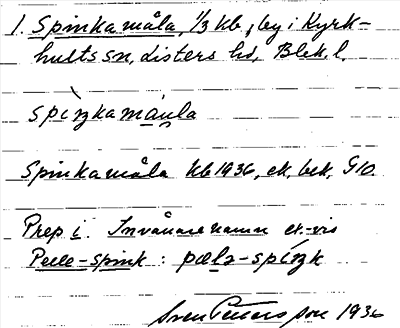 1. Spinkamåla, 1/3 kb, by i Kyrk-
hults sn, Listers hd, Blek. l.
spìŋkamåula
Spinkamåla kb 1936, ek. bek. G10.
Prep i. Invånarenamn ek-vis
Pelle-spink : pælə-spíŋk
Sven Petersson 1936